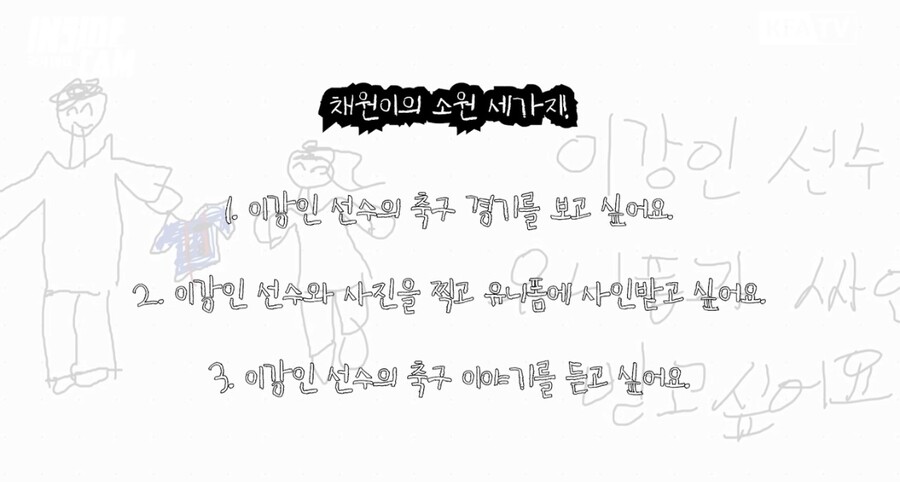 INSIDE
CAM
KFATV
채원이의 소원 세가지!
이강인 선수
1. 이강인 선수의 축구 경기를 보고 싶어요.
유니폼과 싸인
2. 이강인 선수와 사진을 찍고 유니폼에 사인받고 싶어요.
3. 이강인 선수의 축구 이야기를 듣고 싶어요.
받고 싶어요